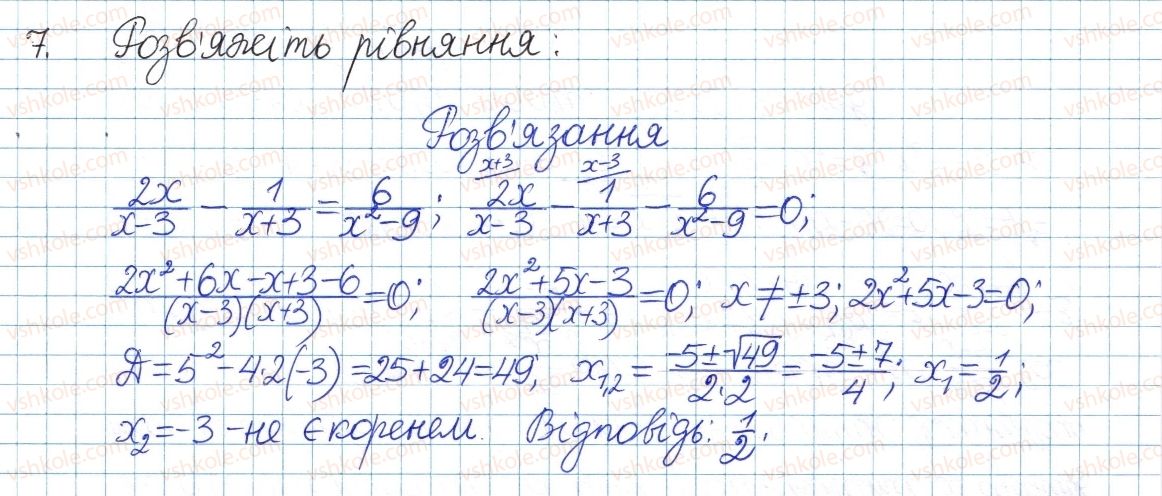 7. Розв'яжіть рівняння:
Розв'язання
2x/(x-3) - 1/(x+3) = 6/(x²-9); 2x/(x-3) (x+3) - 1/(x+3) (x-3) - 6/(x²-9) = 0;
(2x²+6x-x+3-6)/((x-3)(x+3)) = 0; (2x²+5x-3)/((x-3)(x+3)) = 0; x ≠ ±3; 2x²+5x-3=0;
Д = 5² - 4·2(-3) = 25+24 = 49; x₁,₂ = (-5±√49)/(2·2) = (-5±7)/4; x₁ = 1/2;
x₂ = -3 - не є коренем. Відповідь: 1/2.
vshkole.com